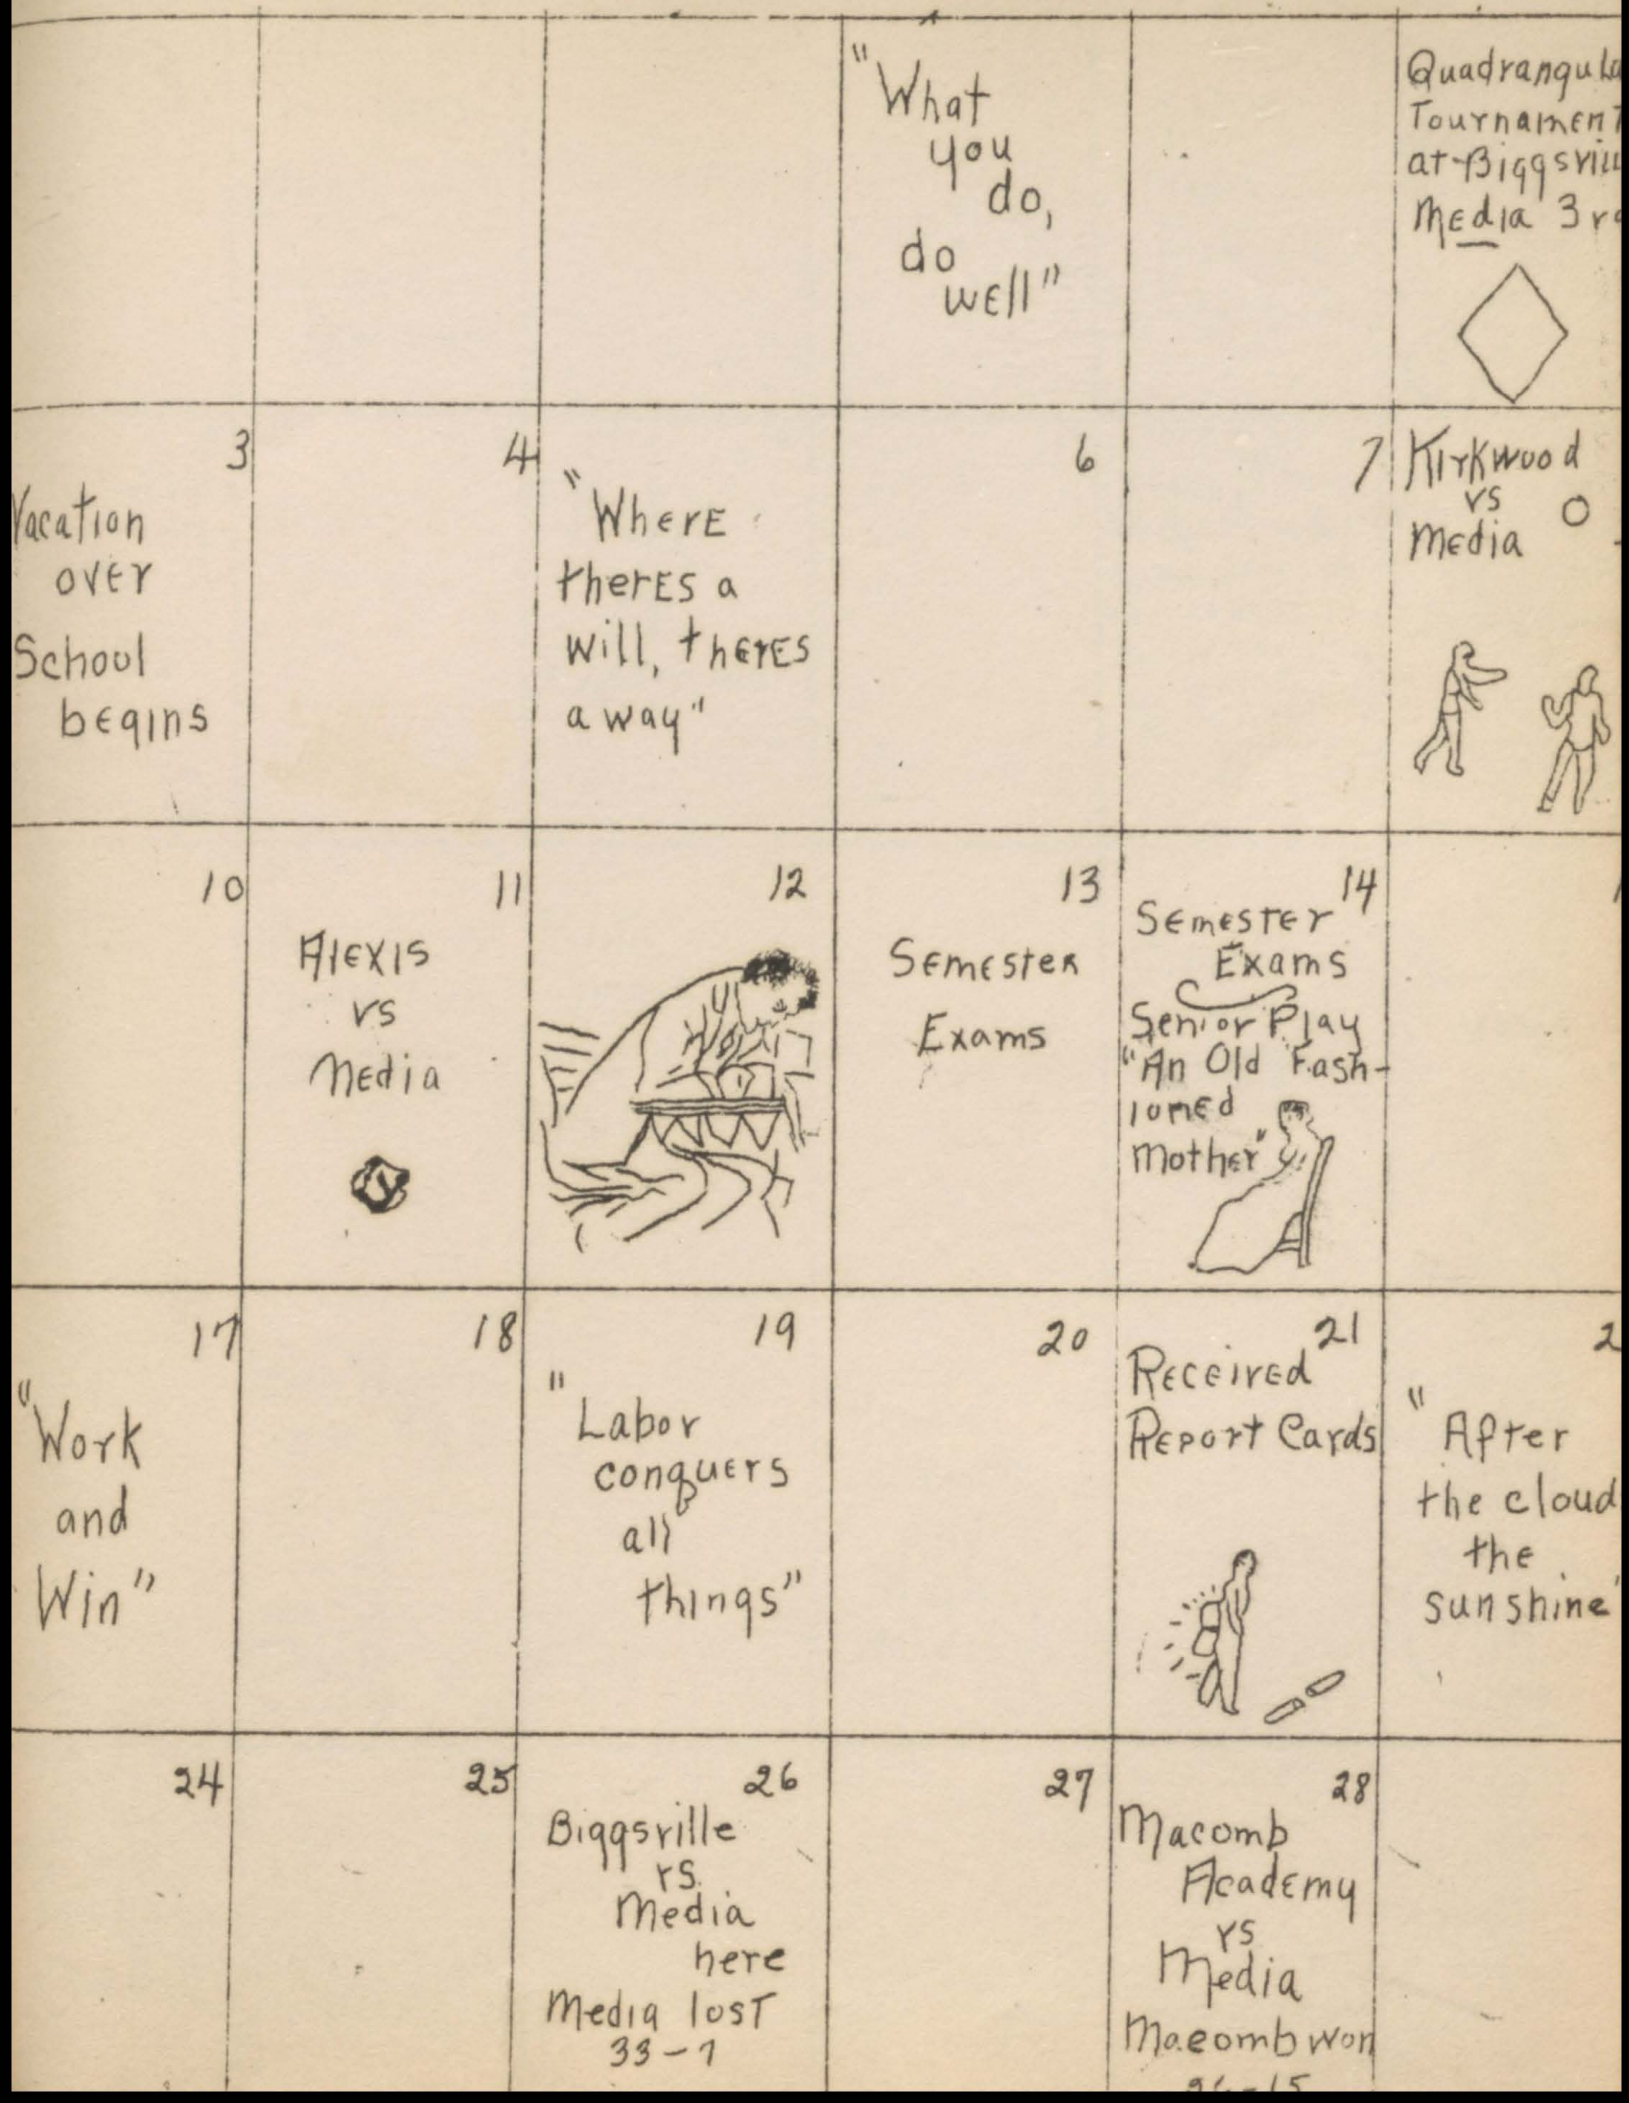 "What
you
do,
do
well"
Tournament
at Biggsvill
Media 3r
3
Vacation
over
School
begins
4
"Where
theres a
will, theres
a way"
6
7
Kirkwood
vs
Media
10
11
Alexis
vs
Media
12
13
Semester
Exams
14
Semester
Exams
Senior Play
"An Old Fash-
ioned
Mother"
17
"Work
and
Win"
18
19
"Labor
conquers
all
things"
20
21
Received
Report Cards
2
"After
the cloud
the
sunshine"
24
25
26
Biggsville
vs.
Media
here
Media lost
33-7
27
28
Macomb
Academy
vs
Media
Macomb won